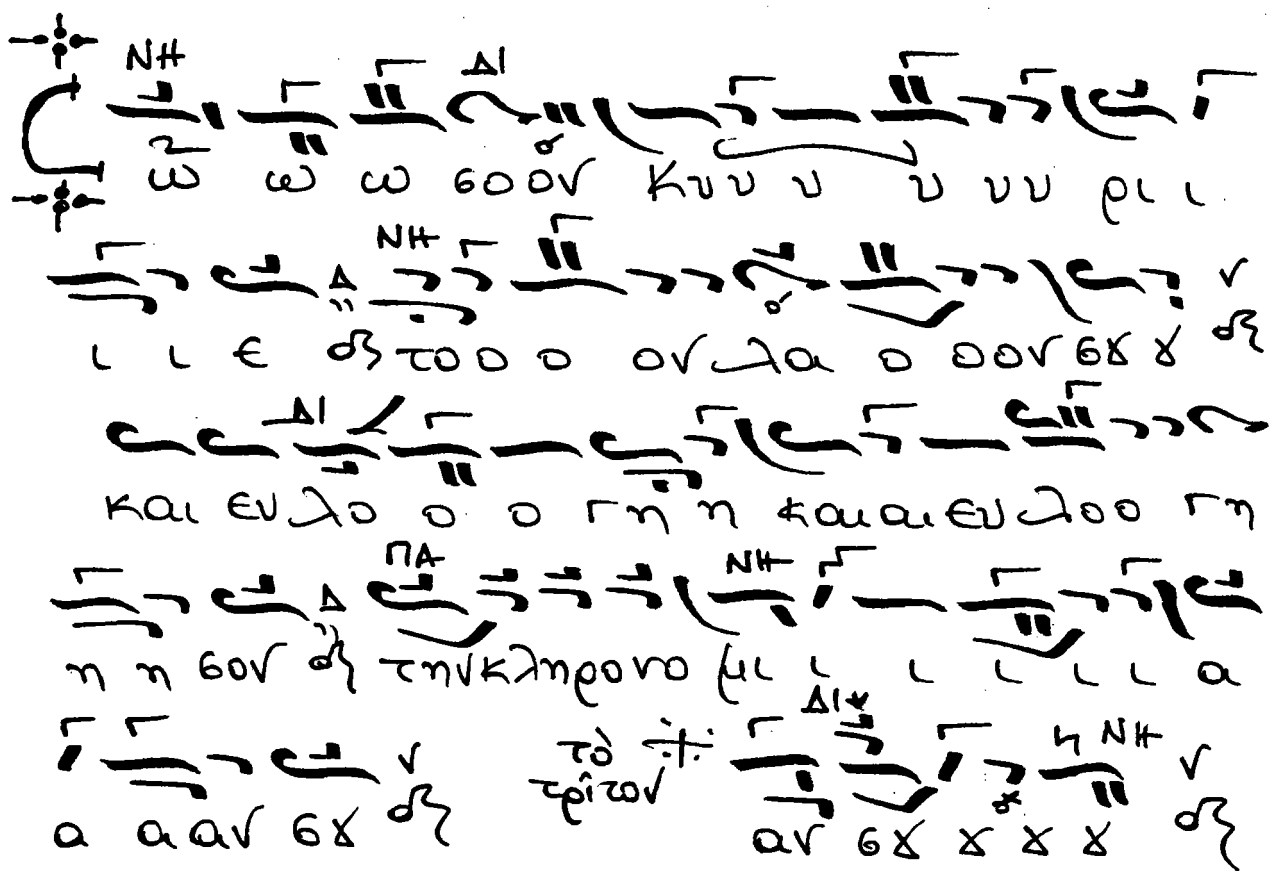 ΝΗ ΔΙ
ω ω ω σοον Κυυ υ υ υυ ρι ι
ΝΗ
ι ι ε το ο ο ονλα ο οον σȣ ȣ
ΔΙ
και ευλο ο ο γη η καιαι ευλοο γη
ΠΑ ΝΗ
η η σον τηνκληρονο μι ι ι ι ι ι α
το τρίτον ΔΙ ΝΗ
α α αν σȣ αν σȣ ȣ ȣ ȣ